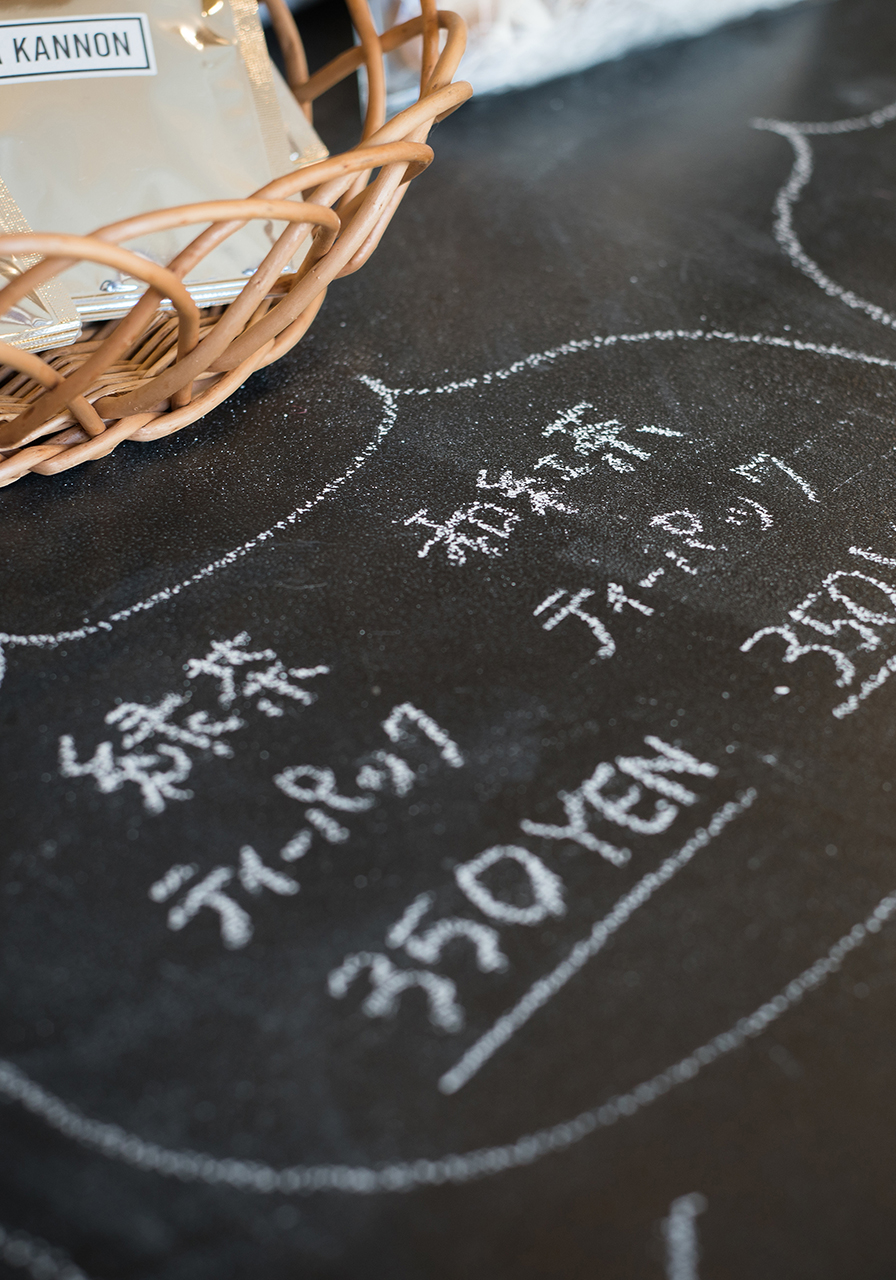 KANNON
和紅茶
ティーバッグ
350
緑茶
ティーバッグ
350 YEN